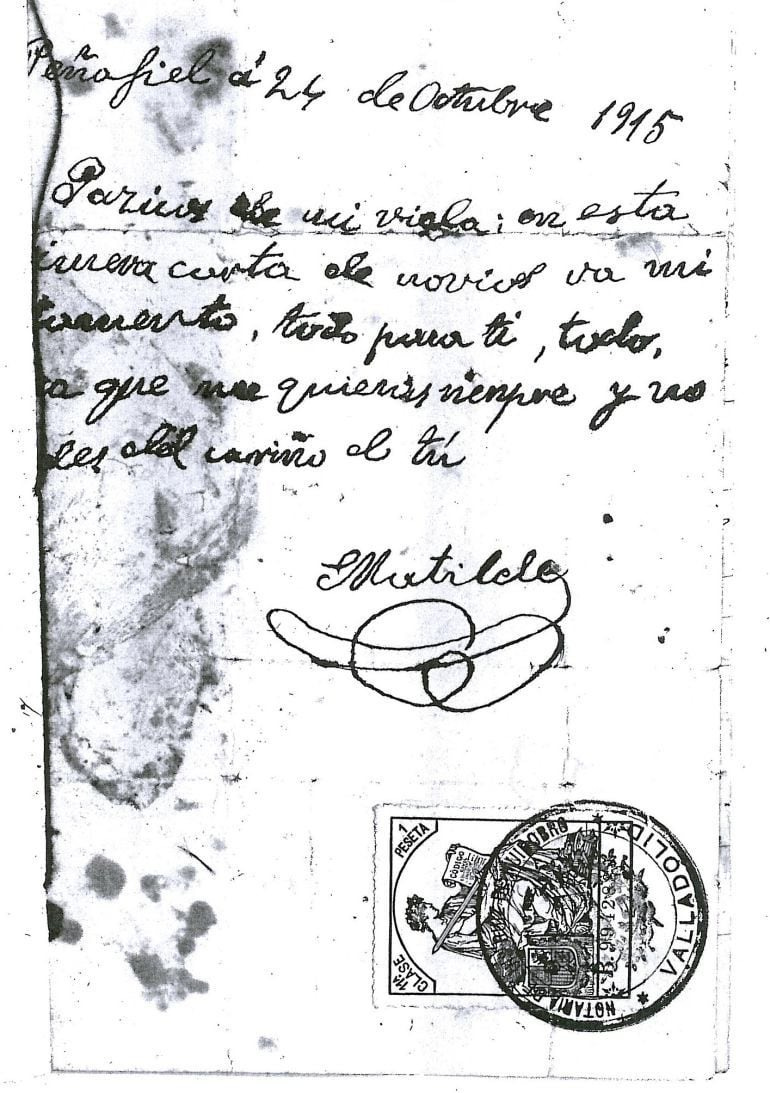 Peñafiel á 24 de Octubre 1915
Pazicos de mi vida: en esta
imera carta de novios va mi
tamento, todo para ti, todo,
a que me quieras siempre y no
des del cariño de tú
Matilde
1 PESETA
CODIGO
11ª CLASE
NOTARIA DE
VALLADOLID